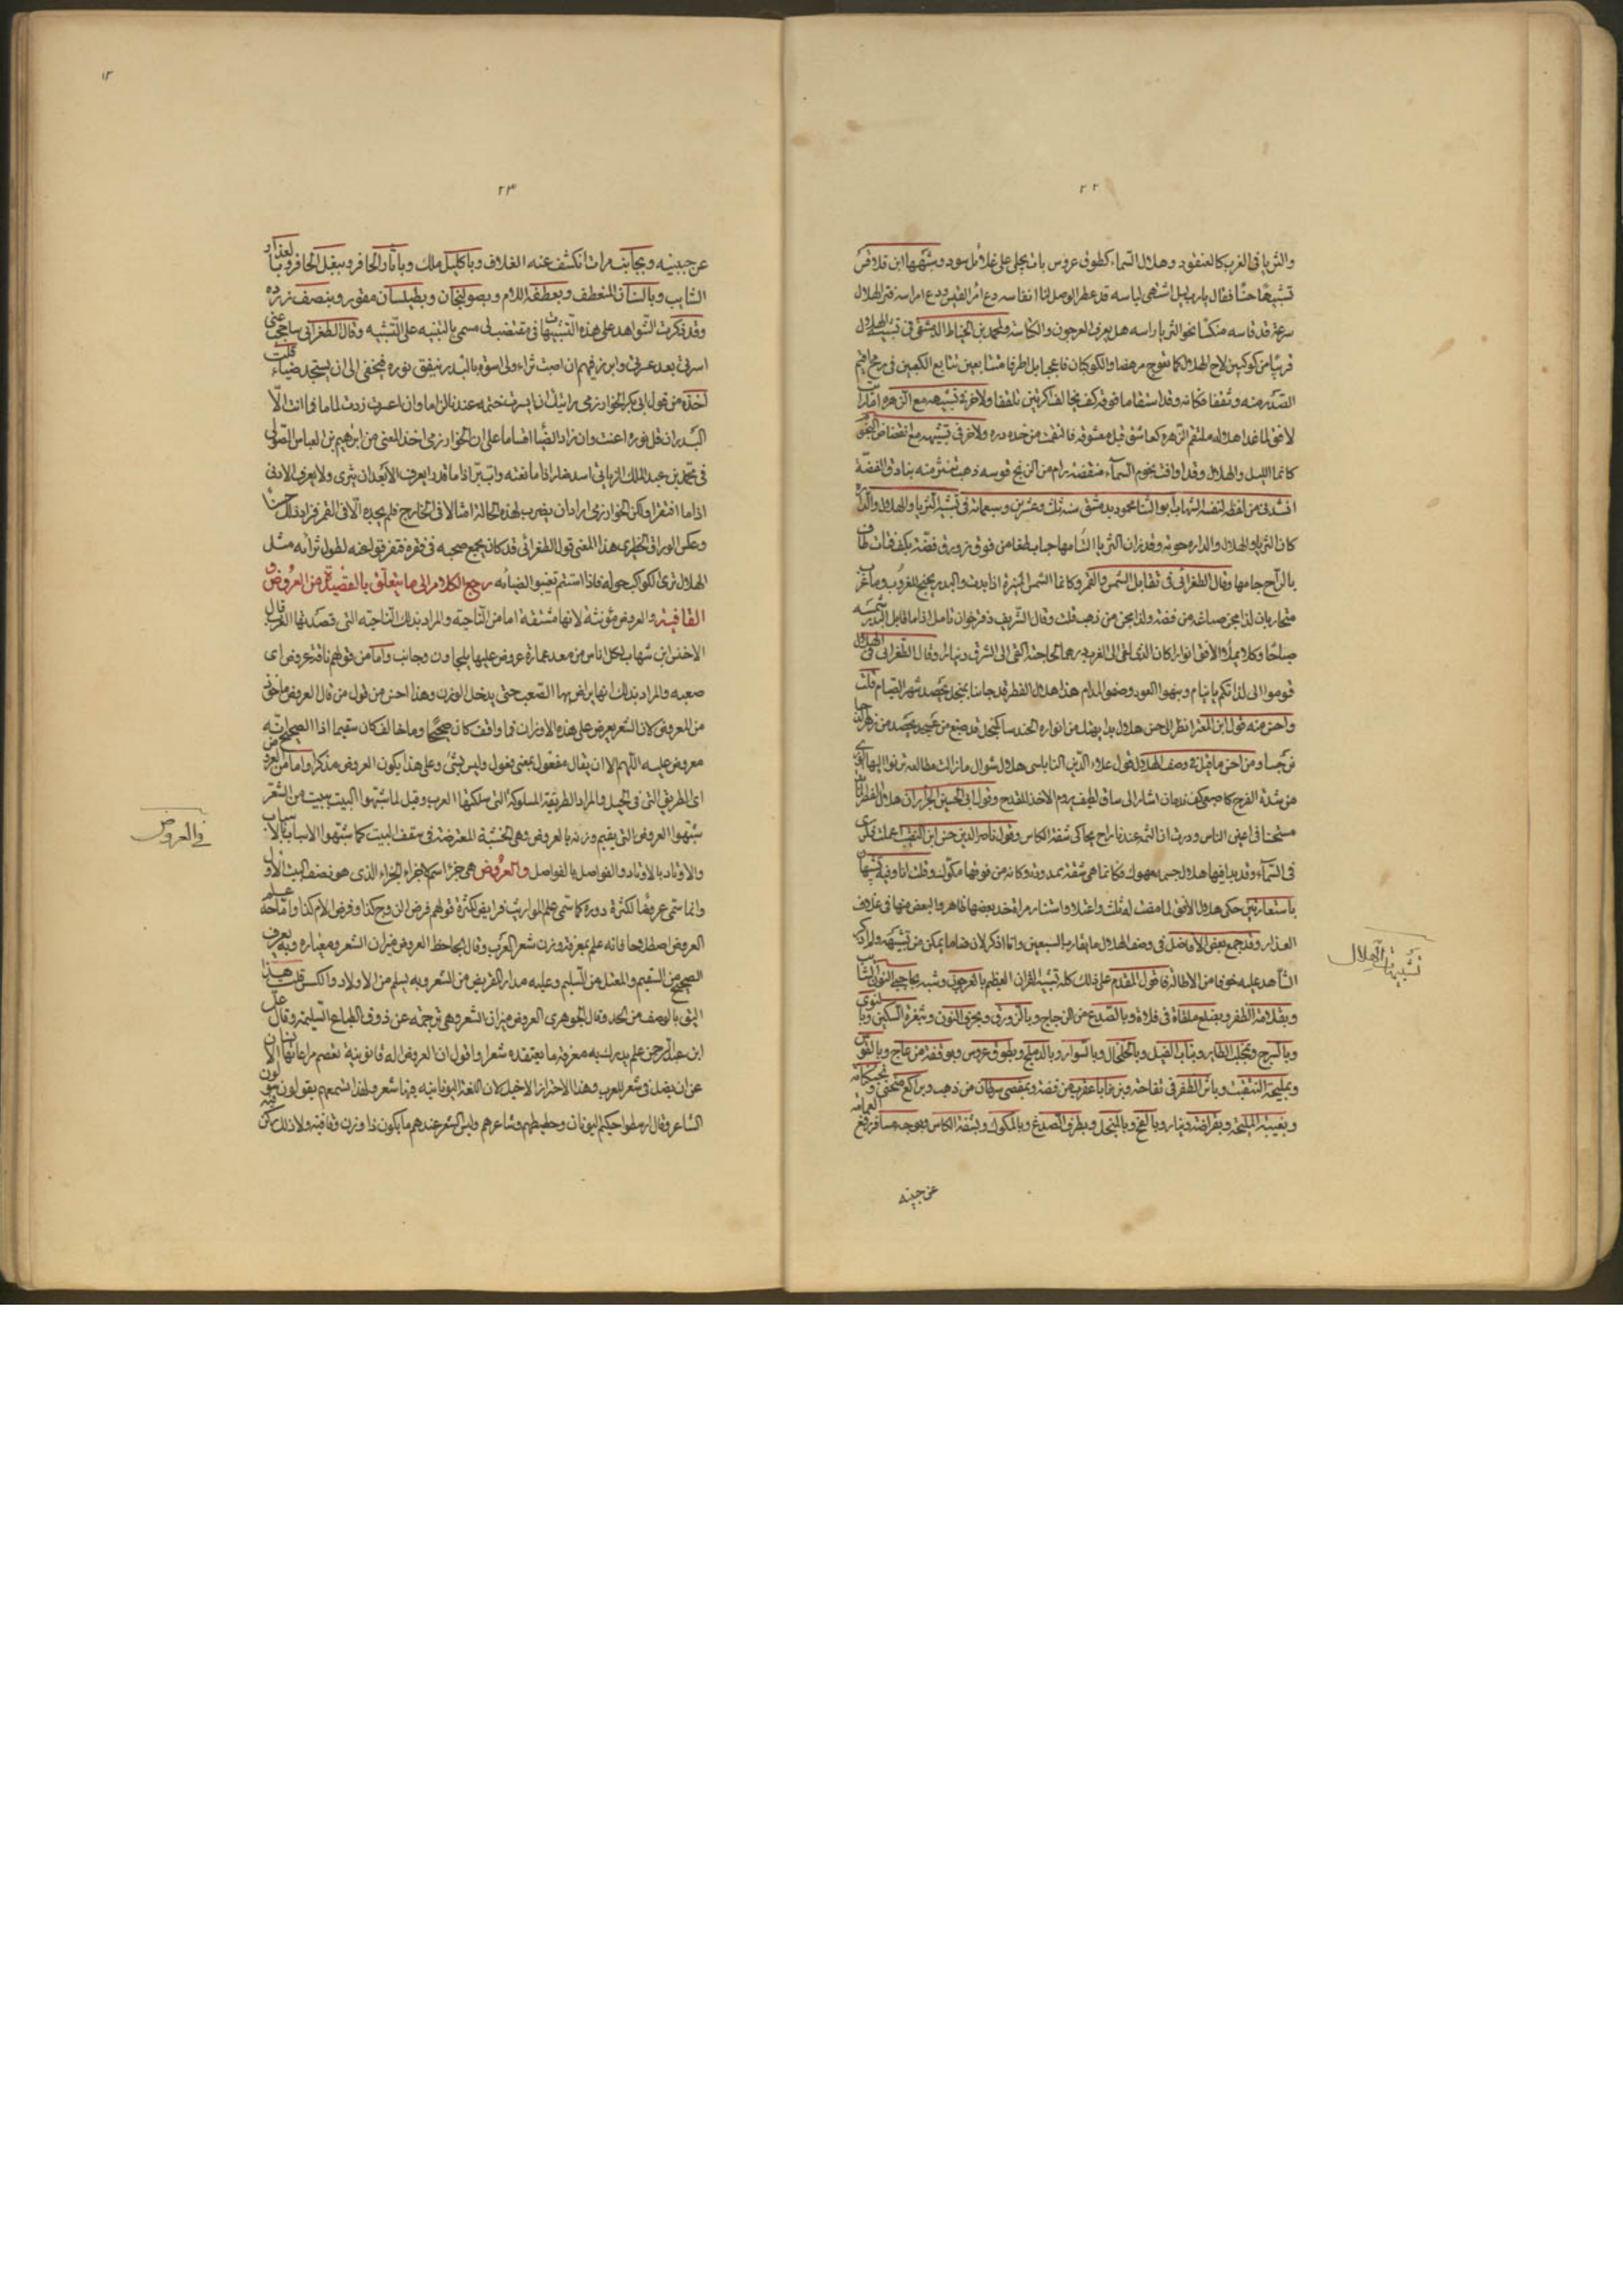 ٢٢
والثريا فى الغرب كالعنقود وهلال السماء كطوق عروس بات يجلى على غلائل سود وشبهها ابن قلاقس
تشبيها حسنا فقال يا رب ليل اشتهى لباسه قد عطر الوصل لنا انفاسه دع امرأ القيس ودع امراسه ترى الهلال
سرعة قد قاسه منكسا نحو الثريا راسه هل يعرف العرجون والكاسه ولمحمد بن الخياط الدمشقى فى تشبيه الهلال
قريبا من كوكبين لاح الهلال كما تعوج مرهفا والكوكبان فاعجبا بل اطرفا متتابعين تتابع الكعبين فى رمح اقيم
الصدر منه وثقفا فكانه وقد استقاما فوقه كف تخالف اكرتين تلقفا ولاخر فى تشبيهه مع الزهرة
لافق لما غدا هلاله ملتقم الزهرة كعاشق قبل معشوقه فالتقمت من خده دره ولاخر فى تشبيهه مع انقضاض النجوم
كانما الليل والهلال وقد وافت نجوم السماء منقضه رام من الزنج قوسه ذهب تنثر منه بنادق الفضة
انشدنى من لفظه لنفسه الشهاب ابو الثنا محمود بدمشق سنة ثلث وعشرين وسبعمائة فى تشبيه الثريا والهلال والدارة
كان الثريا والهلال والداره حوته وقد زان الثريا التئامها حباب طفا من فوق زورق فضة بكف فتاة طاف
بالراح جامها وقال الطغرائى فى تقابل الشمس والقمر وكانما الشمس المنيرة اذا بدت والبدر يجنح للغروب وما غرب
متحاربان لذا مجن صاغه من فضة ولذا مجن من ذهب قلت وقال الشريف ذفرخوان تامل اذا ما قابل البدر شمسه
صباحا وكلا يملا الافق انوارا كان الذى القى الى الغرب درهما احلجته القى الى الشرق دينارا وقال الطغرائى فى الهلال
قوموا الى لذاتكم يا نيام ونبهوا العود وصفوا المدام هذا هلال الفطر قد جاءنا بمنجل يحصد شهر الصيام قلت
واحسن منه قول ابن المعتز انظر الى حسن هلال بدا يهتك من انواره الحندسا كمنجل قد صيغ من عسجد يحصد من زهر الدجا
نرجسا ومن احسن ما قيل فى وصف الهلال قول علاء الدين النابلسى هلال شوال ما زالت مطالعه يرنو اليها الورى
من شدة الفرح كاصبعى كف ندمان اشار الى ساق لطيف يروم الاخذ للقدح وقول ابى الحسين الجزار ان هلال الفطر
مستحسنا فى اعين الناس ودرت ان الثمه عندما راح يحاكى شفة الكاس وقول ناصر الدين حسن ابن النقيب اعملت فكرى
فى السماء وقد بدا فيها هلال جسمه منهوك فكانما هى شقة ممدودة وكانه من فوقها مكوك وقلت انا وفيه تشبيهان
باستعارتين حكى هلال الافق لما مضت له ثلث واعتلا واستنار مراة خد بعضها ظاهر والبعض منها فى غلاف
العذار وقد جمع بعض الافاضل فى وصف الهلال ما يقارب السبعين وانما اذكر لان ضاما يمكن من تشبيهه ولم اذكر
الشاهد عليه خوفا من الاطالة فاقول المقدم على ذلك كله تشبيه القران العظيم بالعرجون وشبه بحاجب الشايب
وبقلامة الظفر وبضلع ملقاة فى فلاة وبالصدع من الزجاج وبالزورق وبحرف النون وبشفرة السكين وبالنؤى
وبالسرج وبمخلب الطاير وبناب الفيل وبالخلخال وبالسوار وبالدملج وبطوق عروس وبوقفة من عاج وبالقوس
وبمليحة انتقبت وباثر الظفر فى تفاحة وبزبانا عقرب من فضة وبمقصى سرطان من ذهب وبراكع منحنى
وبغيبة المليحة وبقراضة دينار وبالفخ وبالمنجل وبطرف الصدغ وبالمكوك وبشفة الكاس وبوجه مسافر رفع العمامة
عن جبينه
تشبيهات الهلال
١٣
٢٣
عن جبينه وبجانب مراة انكشف عنه الغلاف وباكليل ملك وباثار الحافر وبنعل الحافر وبالعذار
الشايب وبالسنان المنعطف وبعطفة اللام وبصولجان وبطيلسان مقور وبنصف زرده
وقد ذكرت الشواهد على هذه التشبيهات فى مقتضب لى مسمى بالتنبيه على التشبيه وقال الطغرائى ساحجب عنى
اسرتى بعد عسرتى وابرز فيهم ان اصبت ثراء ولى اسوة بالبدر ينفق نوره فيخفى الى ان يستجد ضياء قلت
اخذه من قول ابى بكر الخوارزمى رايتك ان ايسرت خيمت عندنا لزاما وان اعسرت زرت لماما فما انت الا
البدر ان قل نوره اعنت وان زاد الضيا اقاما على ان الخوارزمى اخذ المعنى من ابرهيم بن العباس الصولى
فى محمد بن عبد الملك الزيات اسد ضار اذا مانعته واب بر اذا ما قدرا يعرف الابعد ان يثرى ولا يعرف الادنى
اذا ما افتقرا ولكن الخوارزمى اراد ان يضرب لهذه الحالة مثالا فى الخارج فلم يجده الا فى القمر فزاد ذلك حسنا
وعكس الوراق الحظيرى هذا المعنى قول الطغرائى قد كان يجمع صحبه فى فقره فتفرقوا عنه لطول ثرائه مثل
الهلال ترى الكواكب حوله فاذا استتم تغيبوا لضيائه رجع الكلام الى ما يتعلق بالقصيدة من العروض و
القافيه والعروض مؤنثة لانها مشتقة اما من الناحية والمراد بذلك الناحية التى قصدتها العرب قال
الاخنس ابن شهاب لكل اناس من معد عمارة عروض عليها يلجاون وجانب واما من قولهم ناقة عروض اى
صعبه والمراد بذلك انها يراض بها الصعب حتى يدخل الوزن وهذا احسن من قول من قال العروض ماخوذ
من المعروض كان الشعر يعرض على هذه الاوزان فما وافقت كان صحيحا وما خالف كان سقيما اذا الصحيح انه
معروض عليه اللهم الا ان يقال مفعول بمعنى فعول وليس بشئ وعلى هذا يكون العروض مذكرا واما من العروض
اى الطريق التى فى الجبل والمراد الطريقة المسلوكة التى سلكتها العرب وقيل لما شبهوا البيت ببيت من الشعر
شبهوا العروض التى يقيم وزنه بالعروض وهى الخشبة المعترضة فى سقف البيت كما شبهوا الاسباب بالاسباب
والاوتاد بالاوتاد والفواصل بالفواصل والعروض هى جزء اسم لاجزاء الجزاء الذى هو نصف البيت الاول
وانما سمى عروضا لكثرة دوره كما سمى علم المواريث فرايض لكثرة قولهم فرض الزوج كذا وفرض الام كذا واما حد علم
العروض اصطلاحا فانه علم بمعرفة وزن شعر العرب وقال الجاحظ العروض ميزان الشعر ومعياره وبه يعرف
الصحيح من السقيم والمعتل من السليم وعليه مدار القريض من الشعر وبه يسلم من الاولاد والكسر قلت هذا
اليق بالوصف من الحد وقال الجوهرى العروض ميزان الشعر وهى ترجمة عن ذوق الطباع السليمة وقال على
ابن عبد الرحمن علم يدرك به معرفة ما يعتقده شعرا واقول ان العروض اله قانونية تعصم مراعاتها الانسان
عن ان يضل فى شعر العرب وهذا الاحتراز الاخير لان اللغة اليونانيه فيها شعر ولهذا نسمعهم يقولون
الشاعر وقال ارسطوا حكيم اليونان وخطيبهم وشاعرهم وليس الشعر عندهم ما يكون ذا وزن وقافية ولا ذلك ركن
فى العروض